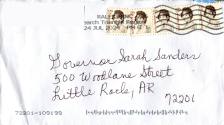 RALEIGH NC
Research Triangle Region
24 JUL 2024 PM
Governor Sarah Sanders
500 Woodlane Street
Little Rock, AR
72201
72201-109199